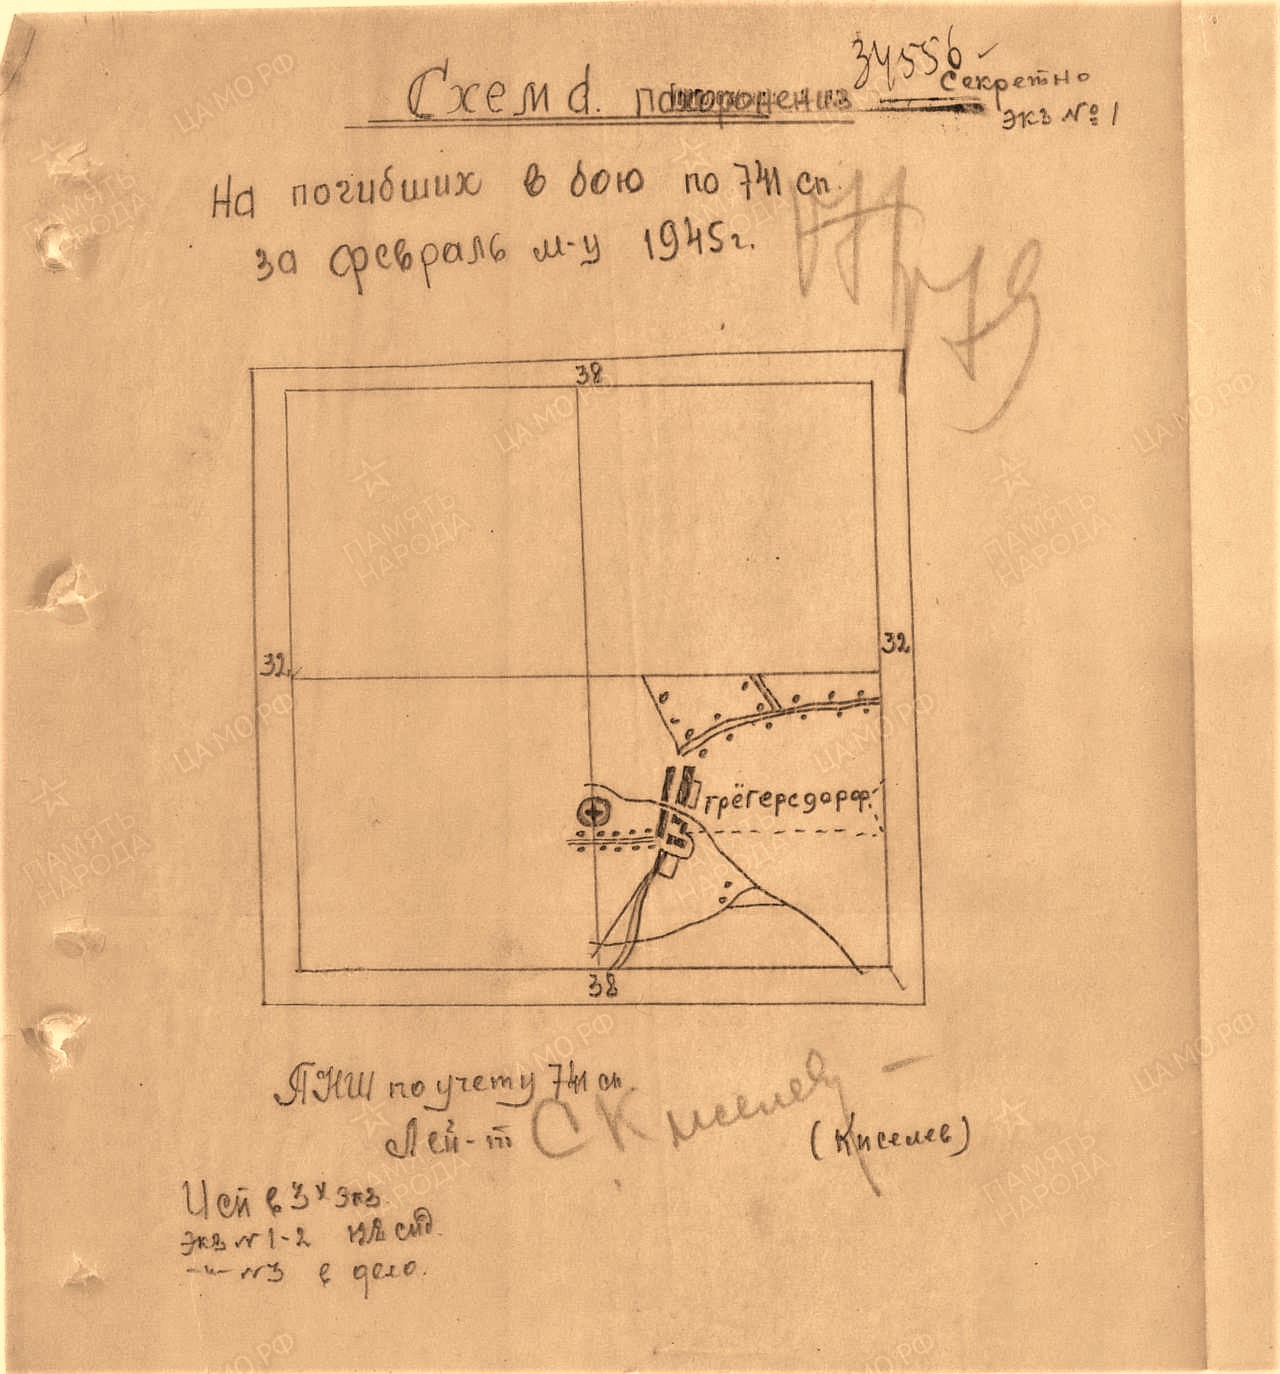 34556
Секретно
Экз № 1
Схема похоронения
На погибших в бою по 741 сп.
за февраль м-ц 1945г.
38
32
32
Грёгерсдорф
38
ПНШ по учету 741 сп.
Лей-т СКиселев
(Киселев)
Исп в 3х экз
Экз № 1-2 128 сд.
-"- №3 в дело.
ЦАМО РФ
ПАМЯТЬ НАРОДА